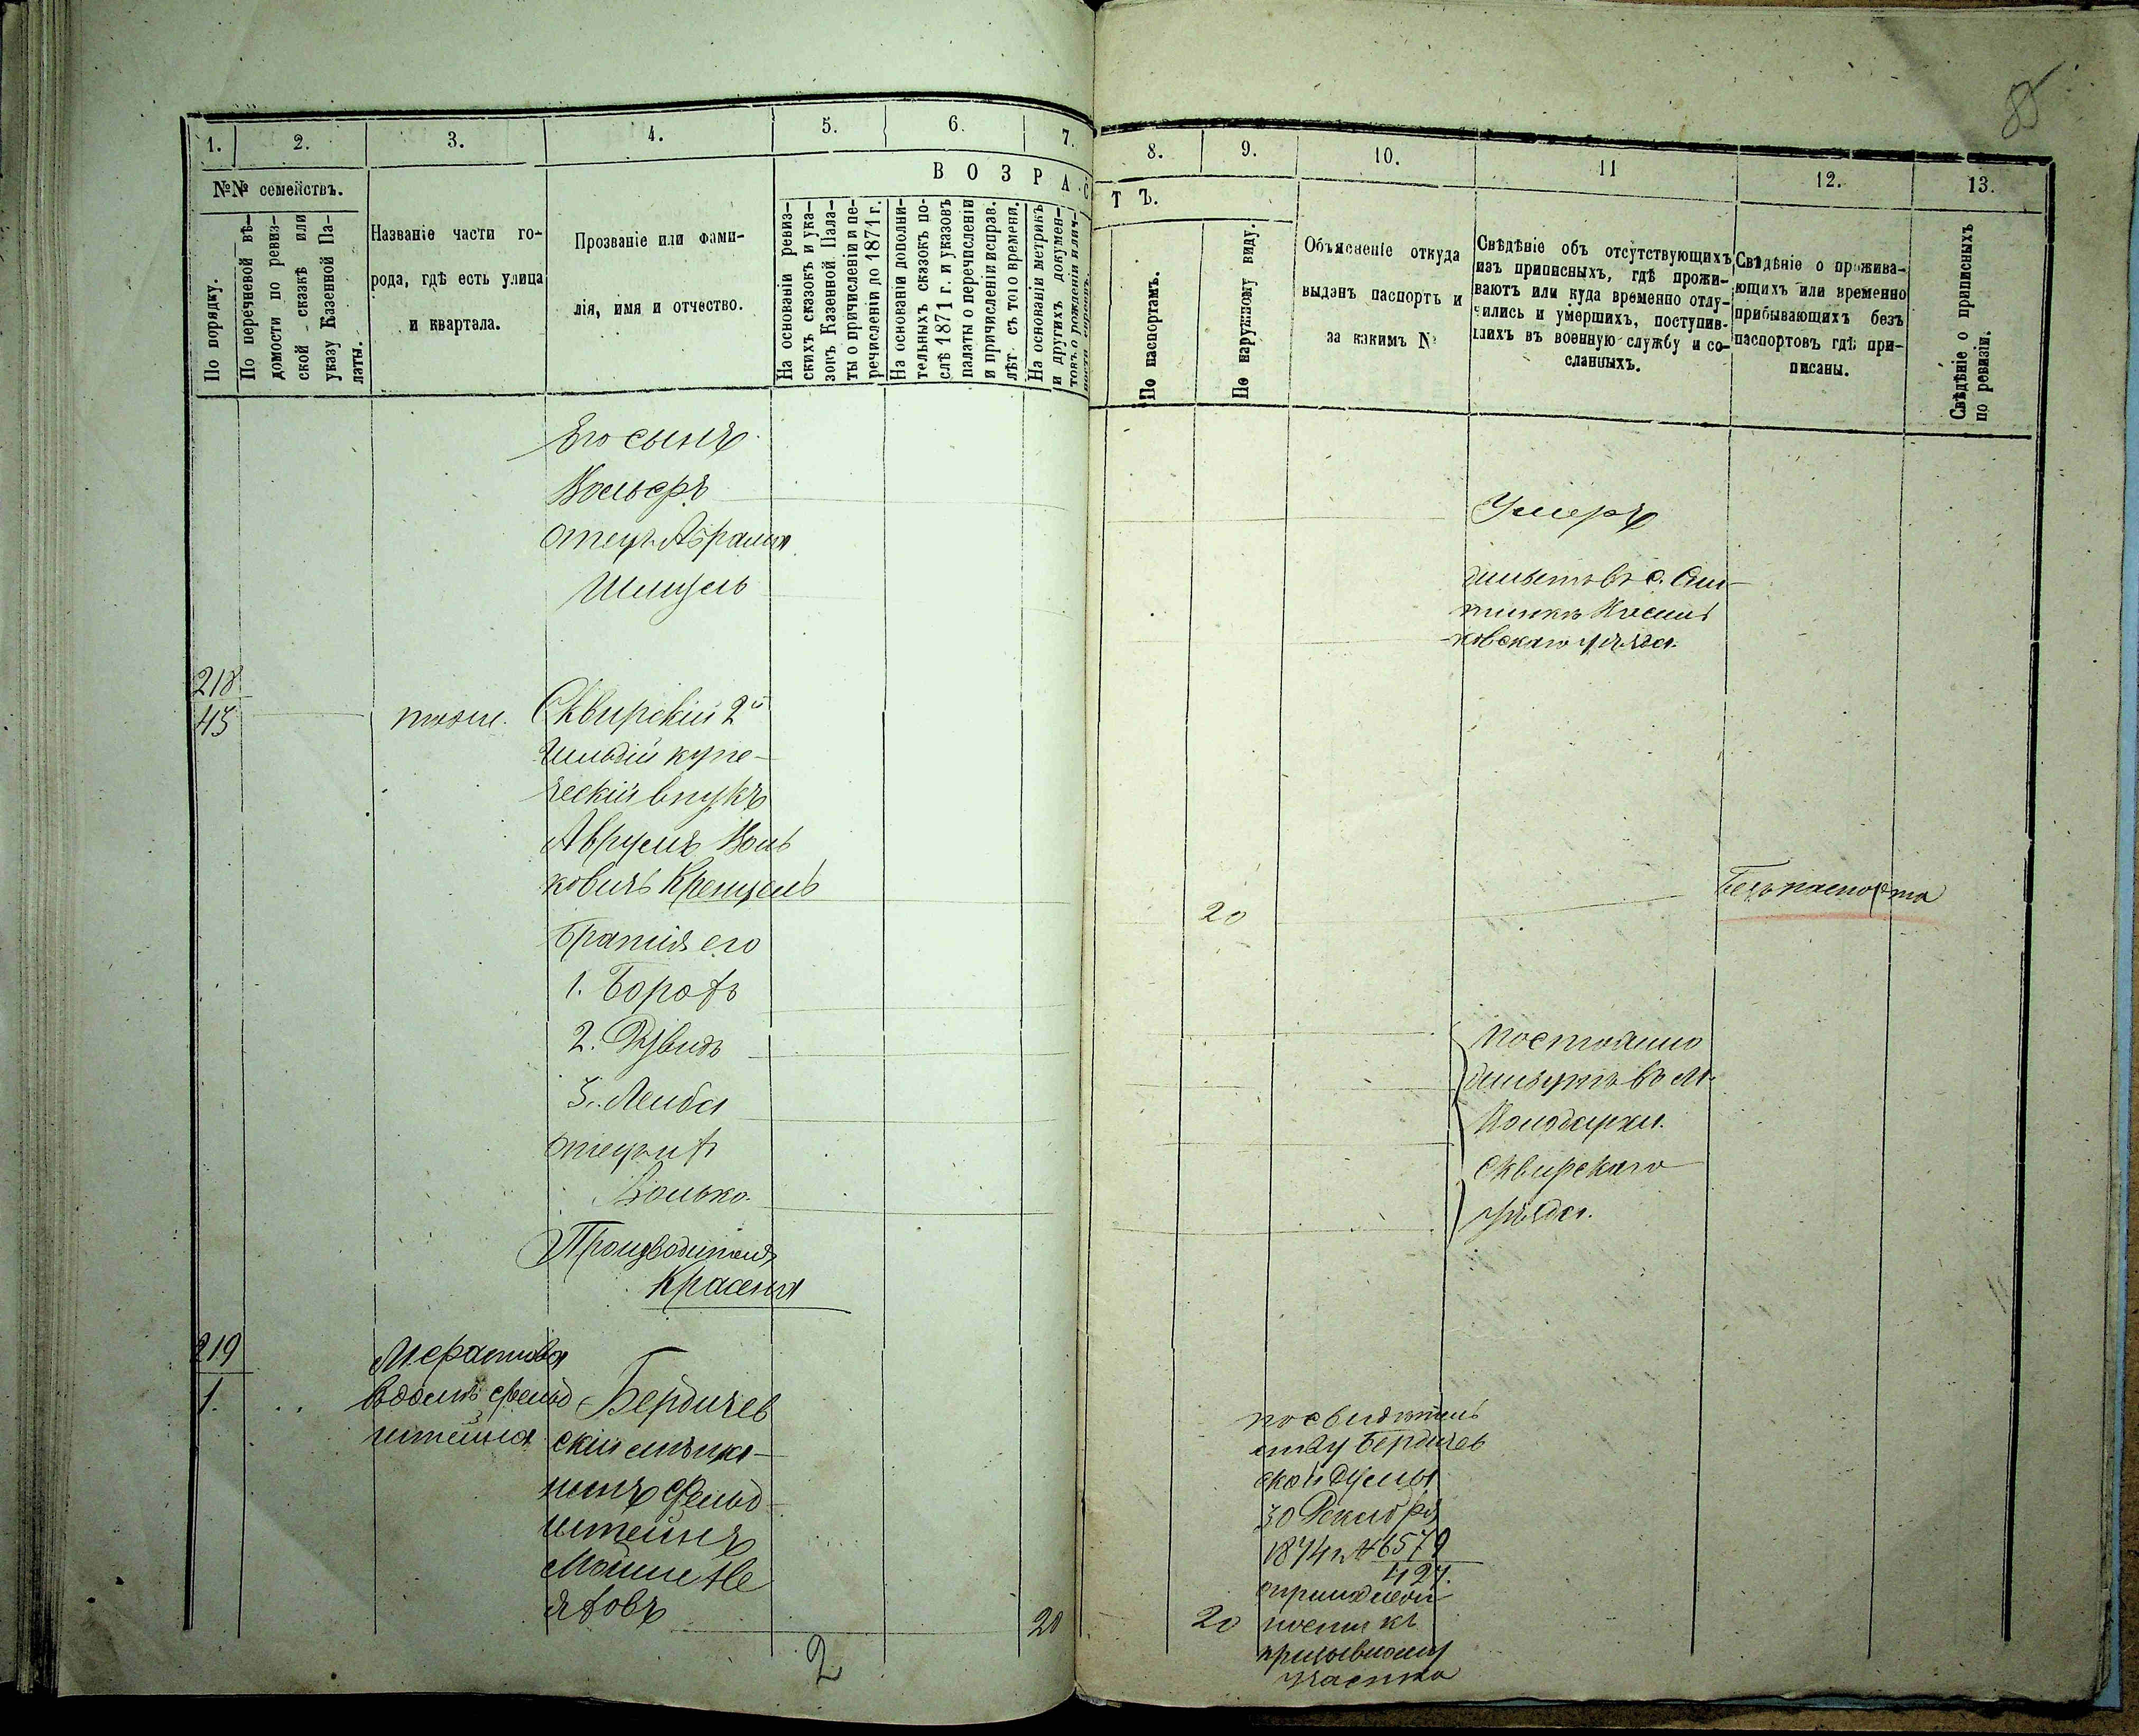 85
1.
2.
3.
4.
5.
6.
7.
8.
9.
10.
11
12.
13.
№№ семействъ.
По порядку.
По перечневой вѣ-
домости по ревиз-
ской сказкѣ или
указу Казенной Па-
латы.
Названіе части го-
рода, гдѣ есть улица
и квартала.
Прозваніе или фами-
лія, имя и отчество.
ВОЗРАС
ТЪ.
На основаніи ревиз-
скихъ сказокъ и ука-
зовъ Казенной Пала-
ты о причисленіи и пе-
речисленіи до 1871 г.
На основаніи дополни-
тельныхъ сказокъ по-
слѣ 1871 г. и указовъ
палаты о перечисленіи
и причисленіи исправ.
лѣт. съ того времени.
На основаніи метрикъ
и другихъ докумен-
товъ о рожденіи и лич-
ности евреевъ.
По паспортамъ.
По наружному виду.
Объясненіе откуда
выданъ паспортъ и
за какимъ №
Свѣдѣніе объ отсутствующихъ
изъ приписныхъ, гдѣ прожи-
ваютъ или куда временно отлу-
чились и умершихъ, поступив-
шихъ въ военную службу и со-
сланныхъ.
Свѣдѣніе о прожива-
ющихъ или временно
прибывающихъ безъ
паспортовъ гдѣ при-
писаны.
Свѣдѣніе о приписныхъ
по ревизіи.
Его сынъ
Вольфъ
Умеръ
отецъ Абрама
Шмуель
живетъ въ с.
ковскаго уѣзда
218
45
тоже.
Сквирскій 2й
гильдіи купе-
ческій внукъ
Аврумъ Воль
ковичъ Кренцель
20
Безъ паспорта
братья его
1. Борохъ
2. Дувидъ
3. Лейба
отецъ ихъ
Волько.
постоянно
живутъ въ м.
Володарки
Сквирскаго
уѣзда.
Производитель
Красенка
219
1.
фельд
штейна
Бердичев
скій мѣща-
нинъ Фельд-
штейнъ
Мошко Не
яховъ
20
20
по свидѣтель
ству Бердичев
ской Думы
30 Декабря
1874 г. № 6579
427.
о принадлеж
ности къ
призывному
участка
2